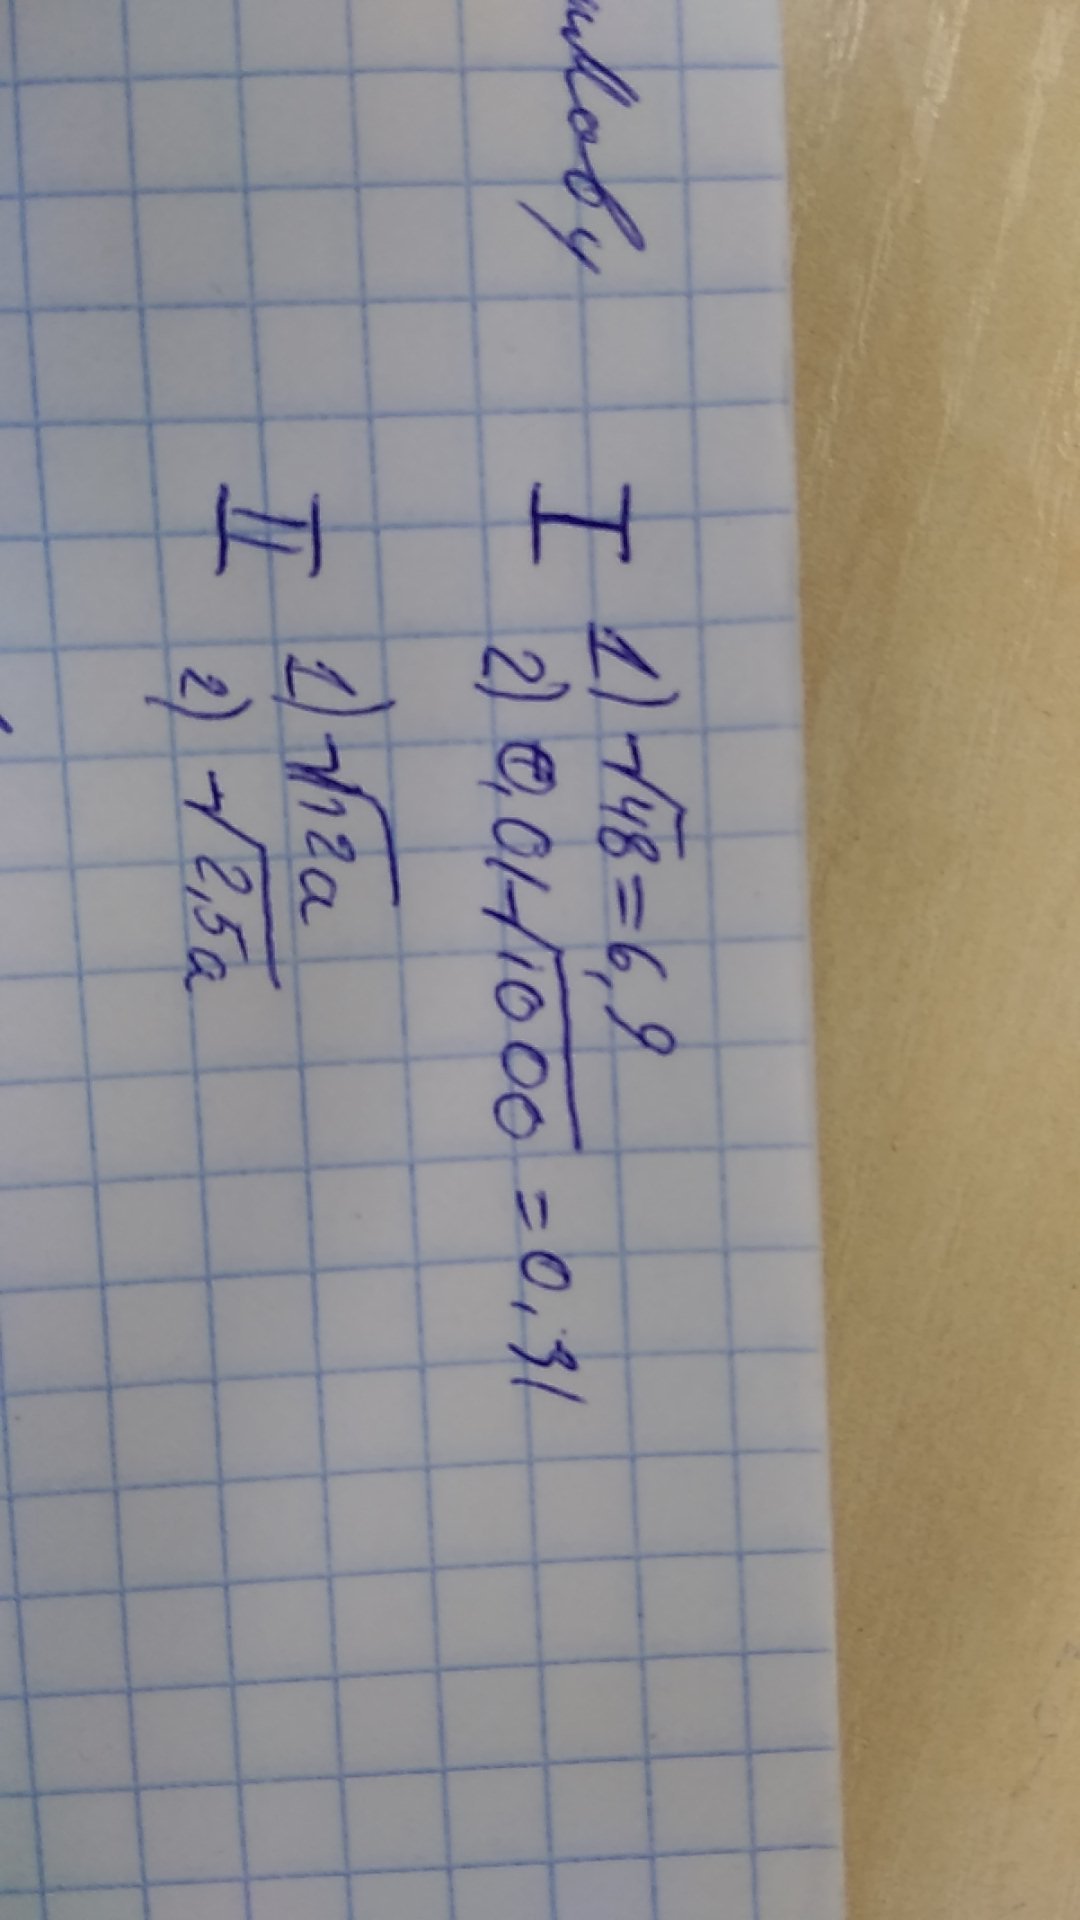 I 1) √48 = 6,9
2) 0,01√1000 = 0,31
II 1) √12a
2) √2,5a